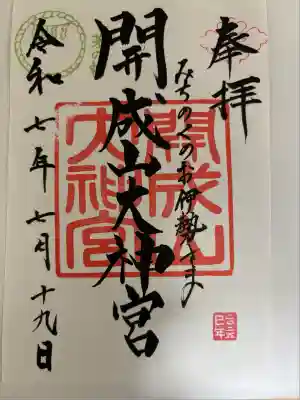 奉拝
みちのくのお伊勢さま
開成山大神宮
令和七年七月十九日
開成山大神宮
二〇二五
巳年